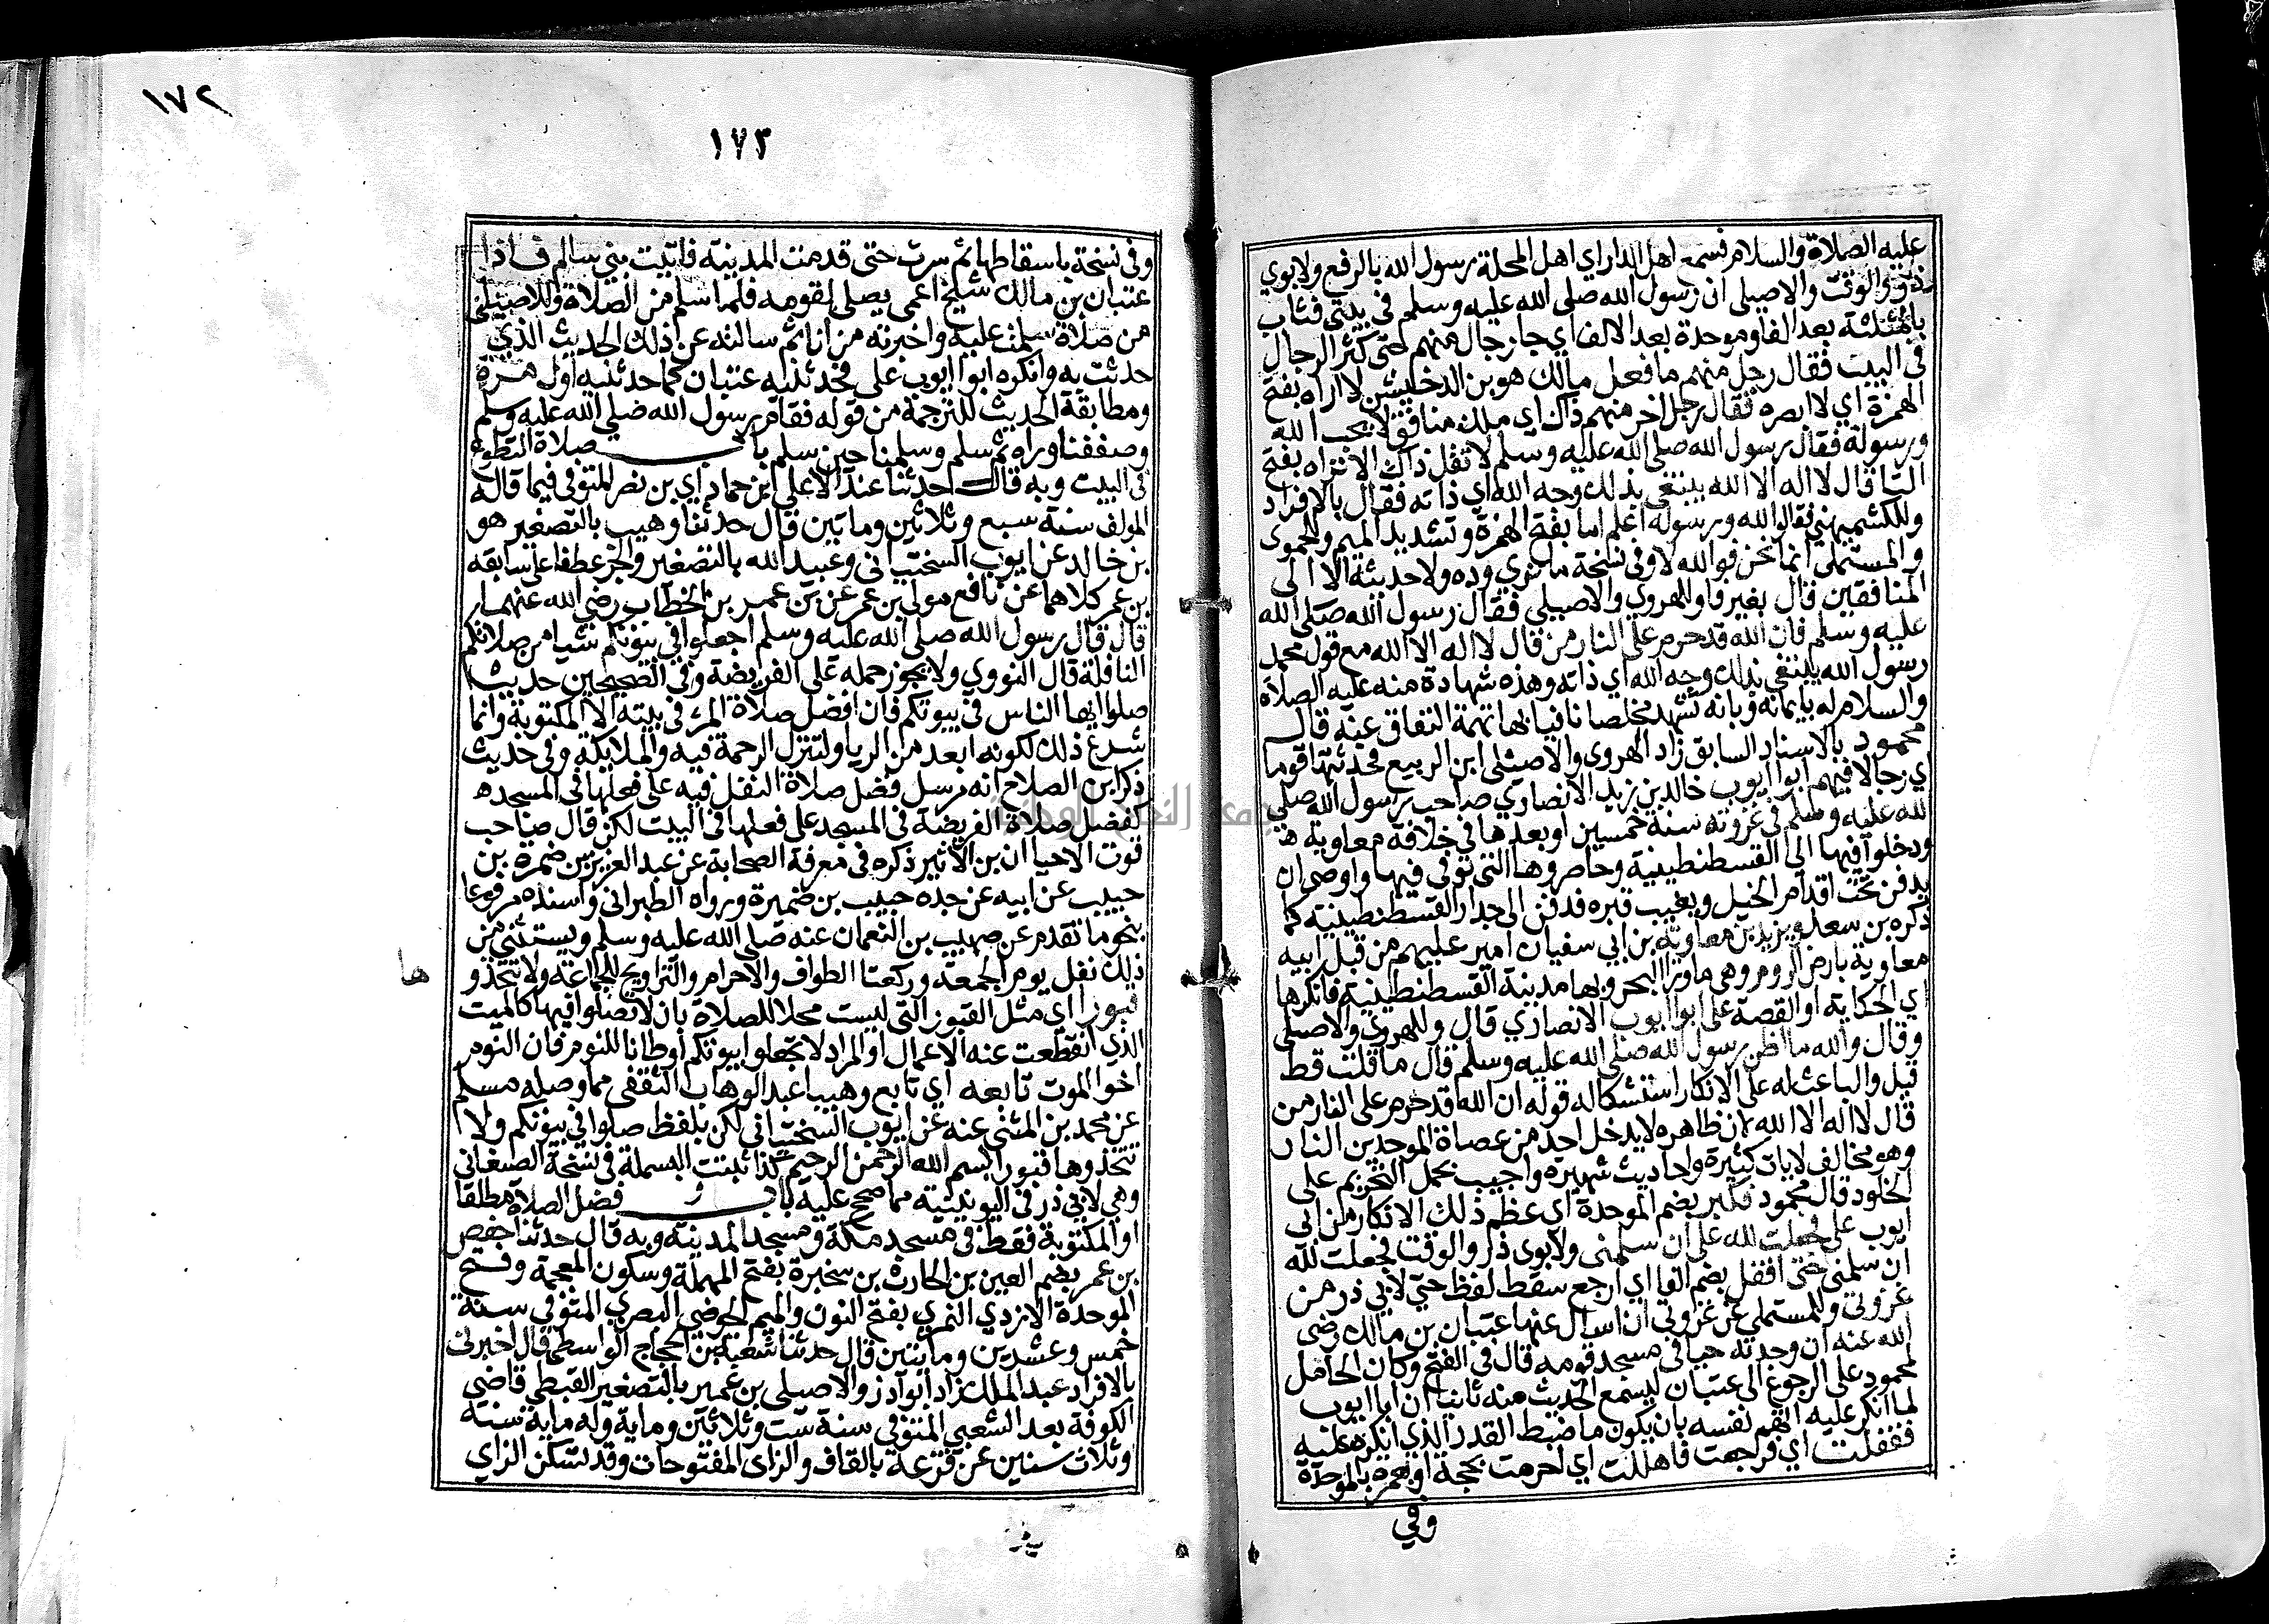 عليه الصلاة والسلام فسمع اهل الدار اي اهل المحلة رسول الله بالرفع ولابوي
ذر والوقت والاصيلى ان رسول الله صلى الله عليه وسلم في بيتي فثاب
بالمثلثة بعد الفا وموحدة بعد الالف اي جا رجال منهم حتى كثر الرجال
في البيت فقال رجل منهم ما فعل مالك هو بن الدخيشن لا اراه بفتح
الهمزة اي لا ابصره فقال رجل اخر منهم ذاك اي ملك منافق لا يحب الله
ورسوله فقال رسول الله صلى الله عليه وسلم لا تقل ذاك الا تراه بفتح
التا قال لا اله الا الله يبتغى بذلك وجه الله اي ذاته فقال بالافراد
وللكشميهني فقالوا الله ورسوله اعلم اما بفتح الهمزة وتشديد الميم وللحموى
والمستملى انما نحن فوالله لا وفى نسخة ما نرى وده ولا حديثه الا الى
المنافقين قال بغير فا وللهروي والاصيلي فقال رسول الله صلى الله
عليه وسلم فان الله قد حرم على النار من قال لا اله الا الله مع قول محمد
رسول الله يبتغى بذلك وجه الله اي ذاته وهذه شهادة منه عليه الصلاة
والسلام له بايمانه وبانه تشهد مخلصا نافيا بها تهمة النفاق عنه قال
محمود بالاسناد السابق زاد الهروى والاصيلى ابن الربيع فحدثتها قوما
اي رجالا فيهم ابوا ايوب خالد بن زيد الانصاري صاحب رسول الله صلى
لله عليه وسلم في غزوته سنة خمسين او بعدها في خلافة معاوية
ودخلوا فيها الى القسطنطينية وحاصروها التى توفى فيها واوصى ان
يدفن تحت اقدام الخيل ويغيب قبره فدفن الى جدار القسطنطينية كما
ذكره بن سعد ويزيد بن معاوية بن ابي سفيان امير عليهم من قبل ابيه
معاوية بارض الروم وهى ماورا البحر وبها مدينة القسطنطينية فانكرها
اي الحكاية او القصة على ابوا ايوب الانصاري قال وللهروي والاصيلى
وقال والله ما اظن رسول الله صلى الله عليه وسلم قال ما قلت قط
قيل والباعث له على الانكار استشكاله قوله ان الله قد حرم على النار من
قال لا اله الا الله لان ظاهره لا يدخل احد من عصاة الموحدين النار
وهو مخالف لايات كثيرة واحاديث شهيره واجيب بحمل التحريم على
الخلود قال محمود فكبر بضم الموحدة اي عظم ذلك الانكار من ابي
ايوب على فجعلت لله على ان سلمنى ولابوى ذر والوقت فجعلت لله
ان سلمنى حتى اقفل بضم الفا اي ارجع سقط لفظ حتى لابي ذر من
غزوتي وللمستملى عن غزوتي ان اسال عنها عتبان بن مالك رضى
الله عنه ان وجدته حيا فى مسجد قومه قال في الفتح وكان الحامل
لمحمود على الرجوع الى عتبان ليسمع الحديث منه ثانيا ان ابا ايوب
لما انكر عليه اتهم نفسه بان يكون ما ضبط القدر الذي انكره عليه
فقفلت اي فرجعت فاهللت اي احرمت بحجة او بعمره بالموحدة
وفي
١٧٢
١٧٣
وفى نسخة باسقاطها ثم سرت حتى قدمت المدينة فاتيت بني سالم فاذا
عتبان بن مالك شيخ اعمى يصلى لقومه فلما سلم من الصلاة وللاصيلى
من صلاته سلمت عليه واخبرته من انا ثم سالته عن ذلك الحديث الذي
حدثت به وانكره ابوا ايوب على فحدثنيه عتبان كما حدثنيه اول مرة
ومطابقة الحديث للترجمة من قوله فقام رسول الله صلى الله عليه وسلم
وصففنا وراه ثم سلم وسلمنا حين سلم باب صلاة التطوع
في البيت وبه قال حدثنا عبد الاعلى ابن حماد اي بن نصر المتوفى فيما قاله
المولف سنة سبع وثلاثين وماتين قال حدثنا وهيب بالتصغير هو
بن خالد عن ايوب السختياني وعبيد الله بالتصغير والجر عطفا على سابقه
بن عمر كلاهما عن نافع مولى بن عمر عن بن عمر بن الخطاب رضى الله عنهما
قال قال رسول الله صلى الله عليه وسلم اجعلوا في بيوتكم شيا من صلاتكم
النافلة قال النووي ولا يجوز حمله على الفريضة وفي الصحيحين حديث
صلوا ايها الناس في بيوتكم فان افضل صلاة المر في بيته الا المكتوبة وانما
شرع ذلك لكونه ابعد من الريا ولتنزل الرحمة فيه والملايكة وفى حديث
ذكر ابن الصلاح انه مرسل فضل صلاة النفل فيه على فعلها في المسجد
كفضل صلاة الفريضة في المسجد على فعلها في البيت لكن قال صاحب
قوت الاحيا ان بن الاثير ذكره في معرفة الصحابة عن عبد العزيز بن ضمره بن
حبيب عن ابيه عن جده حبيب بن ضميرة ورواه الطبراني واسنده مرفوعا
بنحو ما تقدم عن صهيب بن النعمان عنه صلى الله عليه وسلم ويستثنى من
ذلك نفل يوم الجمعة وركعتا الطواف والاحرام والتراويح للجماعة ولا تتخذو
ها
قبورا اي مثل القبور التى ليست محلا للصلاة بان لا تصلوا فيها كالميت
الذي انقطعت عنه الاعمال او المراد لا تجعلوا بيوتكم اوطانا للنوم فان النوم
اخوا الموت تابعه اي تابع وهيبا عبد الوهاب الثقفى مما وصله مسلم
عن محمد بن المثنى عنه عن ايوب السختياني لكن بلفظ صلوا في بيوتكم ولا
تتخذوها قبورا بسم الله الرحمن الرحيم كذا ثبتت البسملة في نسخة الصغاني
وهي لابي ذر في اليونينية مما صحح عليه باب فضل الصلاة مطلقا
او المكتوبة فقط في مسجد مكة ومسجد المدينة وبه قال حدثنا حفص
بن عمر بضم العين بن الحارث بن سخبرة بفتح المهملة وسكون المعجمة وفتح
الموحدة الازدي النمري بفتح النون والميم الحوضي البصري المتوفى سنة
خمس وعشرين ومايتين قال حدثنا شعبة بن الحجاج الواسطى قال اخبرنى
بالافراد عبد الملك زاد ابوا ذر والاصيلى بن عمير بالتصغير القبطى قاضي
الكوفة بعد الشعبي المتوفى سنة ست وثلاثين وماية وله ماية سنة
وثلاث سنين عن قزعة بالقاف والزاى المفتوحات وقد تسكن الزاي